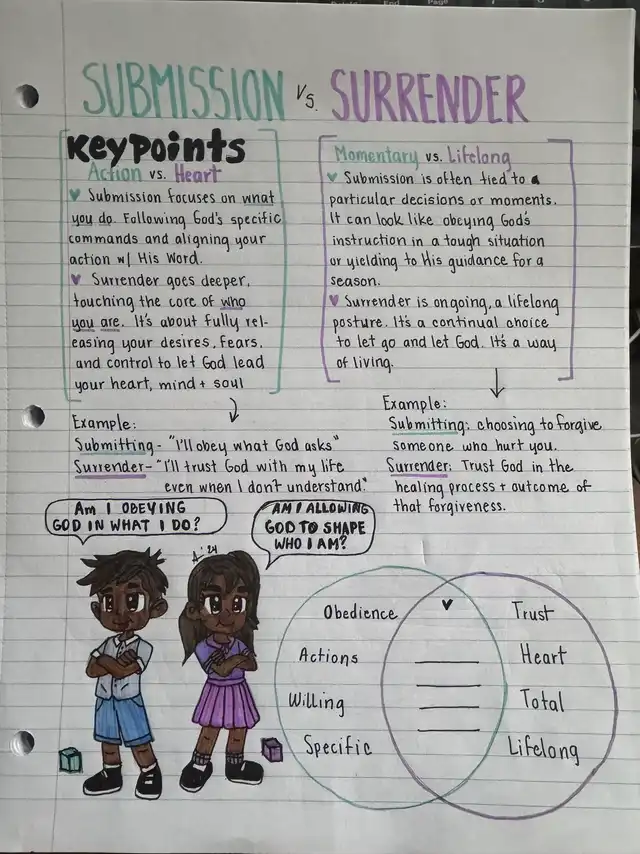 SUBMISSION vs. SURRENDER
Key points
Action vs. Heart
Submission focuses on what
you do. Following God's specific
commands and aligning your
action w/ His Word.
Surrender goes deeper,
touching the core of who
you are. It's about fully rel-
easing your desires, fears,
and control to let God lead
your heart, mind + soul
Momentary vs. Lifelong
Submission is often tied to a
particular decisions or moments.
It can look like obeying God's
instruction in a tough situation
or yielding to His guidance for a
season.
Surrender is ongoing, a lifelong
posture. It's a continual choice
to let go and let God. It's a way
of living.
Example:
Submitting - "I'll obey what God asks"
Surrender - "I'll trust God with my life
even when I don't understand."
Example:
Submitting: choosing to forgive
someone who hurt you.
Surrender: Trust God in the
healing process + outcome of
that forgiveness.
Am I OBEYING
GOD IN WHAT I DO?
AM I ALLOWING
GOD TO SHAPE
WHO I AM?
Obedience
Actions
Willing
Specific
Trust
Heart
Total
Lifelong